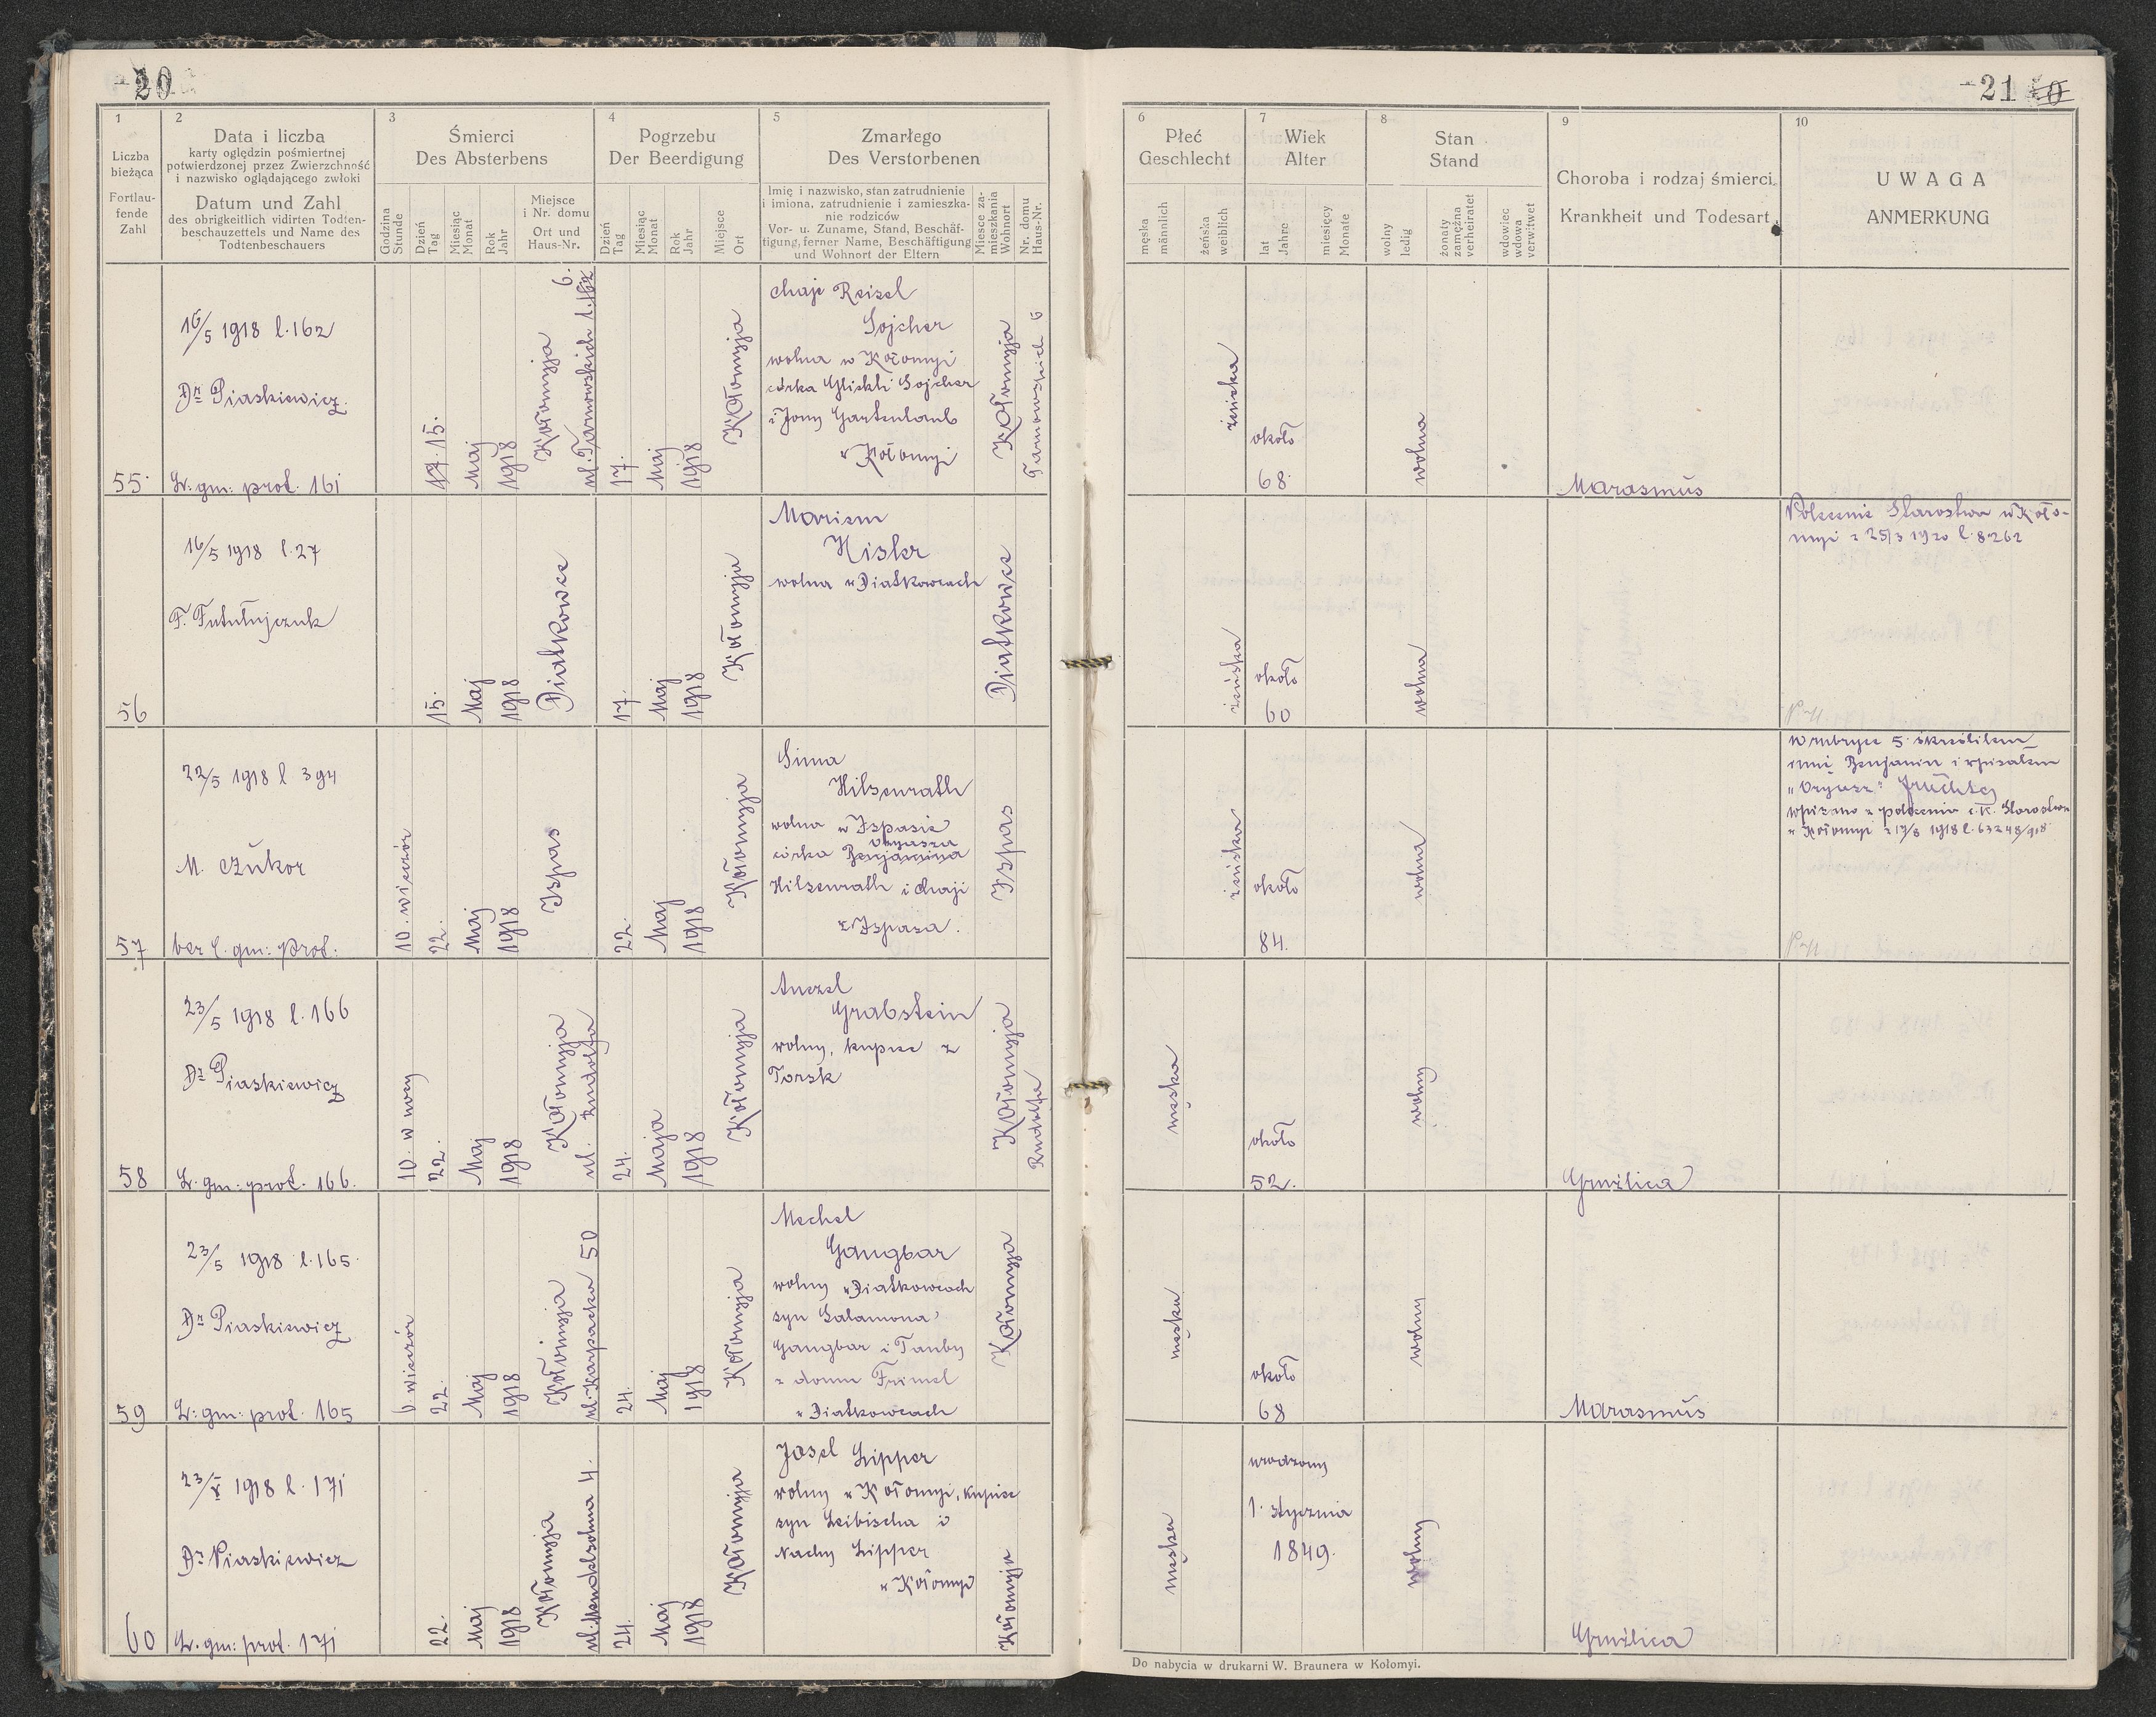 20
21
1
Liczba
bieżąca
Fortlau-
fende
Zahl
2
Data i liczba
karty oględzin pośmiertnej
potwierdzonej przez Zwierzchność
i nazwisko oglądającego zwłoki
Datum und Zahl
des obrigkeitlich vidirten Todten-
beschauzettels und Name des
Todtenbeschauers
3
Śmierci
Des Absterbens
Godzina
Stunde
Dzień
Tag
Miesiąc
Monat
Rok
Jahr
Miejsce
i Nr. domu
Ort und
Haus-Nr.
4
Pogrzebu
Der Beerdigung
Dzień
Tag
Miesiąc
Monat
Rok
Jahr
Miejsce
Ort
5
Zmarłego
Des Verstorbenen
Imię i nazwisko, stan zatrudnienie
i imiona, zatrudnienie i zamieszka-
nie rodziców
Vor- u. Zuname, Stand, Beschäf-
tigung, ferner Name, Beschäftigung
und Wohnort der Eltern
Miesce za-
mieszkania
Wohnort
Nr. domu
Haus-Nr.
6
Płeć
Geschlecht
męska
männlich
żeńska
weiblich
7
Wiek
Alter
lat
Jahre
miesięcy
Monate
8
Stan
Stand
wolny
ledig
żonaty
zamężna
verheiratet
wdowiec
wdowa
verwitwet
9
Choroba i rodzaj śmierci
Krankheit und Todesart
10
UWAGA
ANMERKUNG
55
16/5 1918 l. 162
Dr Piaskiewicz
L. gm: prot. 161
15.
Maj
1918
Kołomyja
ul. Tarnowskich 6.
17.
Maj
1918
Kołomyja
Chaje Reisel
Sojcher
wolna w Kołomyi
córka Gliekli Sojcher
i Jony Gartenlaub
w Kołomyi
Kołomyja
Tarnowskich 6
żeńska
około
68.
wolna
Marasmus
56
16/5 1918 l. 27
F. Fututujczuk
15.
Maj
1918
Diatkowce
17.
Maj
1918
Kołomyja
Mariem
Hisler
wolna w Diatkowcach
Diatkowce
żeńska
około
60
wolna
Polecenie Starostwa w Koło-
myi z 25/3 1920 l. 8262
57
22/5 1918 l 394
M. Czukor
bez l. gm: prot.
10. wieczór
22.
Maj
1918
Ispas
22.
Maj
1918
Kołomyja
Sima
Hilsenrath
wolna w Ispasie
Oryasza
córka Benjamina
Hilsenrath i Chaji
z Ispasa.
Ispas
żeńska
około
84.
wolna
W rubryce 5. skreśliłem
imię Benjamin i wpisałem
wpisano z polecenia c.k. Starostwa
w Kołomyi z 17/8 1918 l. 63248/918
58
23/5 1918 l. 166
Dr Piaskiewicz
L. gm: prot. 166.
10. w nocy
22.
Maj
1918
Kołomyja
ul. Rudolfa
24.
Maja
1918
Kołomyja
Anczel
Grabstein
wolny, kupiec z
Torsk
Kołomyja
Rudolfa
męska
około
52.
wolny
Gruźlica
59
23/5 1918 l. 165
Dr Piaskiewicz
L: gm: prot. 165
6 wieczór
22.
Maj
1918
Kołomyja
ul. Karpacka 50
24.
Maj
1918
Kołomyja
Mechel
Gangbar
wolny w Diatkowcach
syn Salamona
Gangbar i Tauby
z domu Frimel
w Diatkowcach
Kołomyja
męska
około
68
wolny
Marasmus
60
23/V 1918 l. 171
Dr Piaskiewicz
L. gm: prot. 171
22.
Maj
1918
Kołomyja
ul. Mendelsohna 4.
24.
Maj
1918
Kołomyja
Josel Lipper
wolny w Kołomyi, kupiec
syn Leibischa i
Nachy Lipper
w Kołomyi
Kołomyja
męska
urodzony
1. stycznia
1849.
wolny
Gruźlica
Do nabycia w drukarni W. Braunera w Kołomyi.